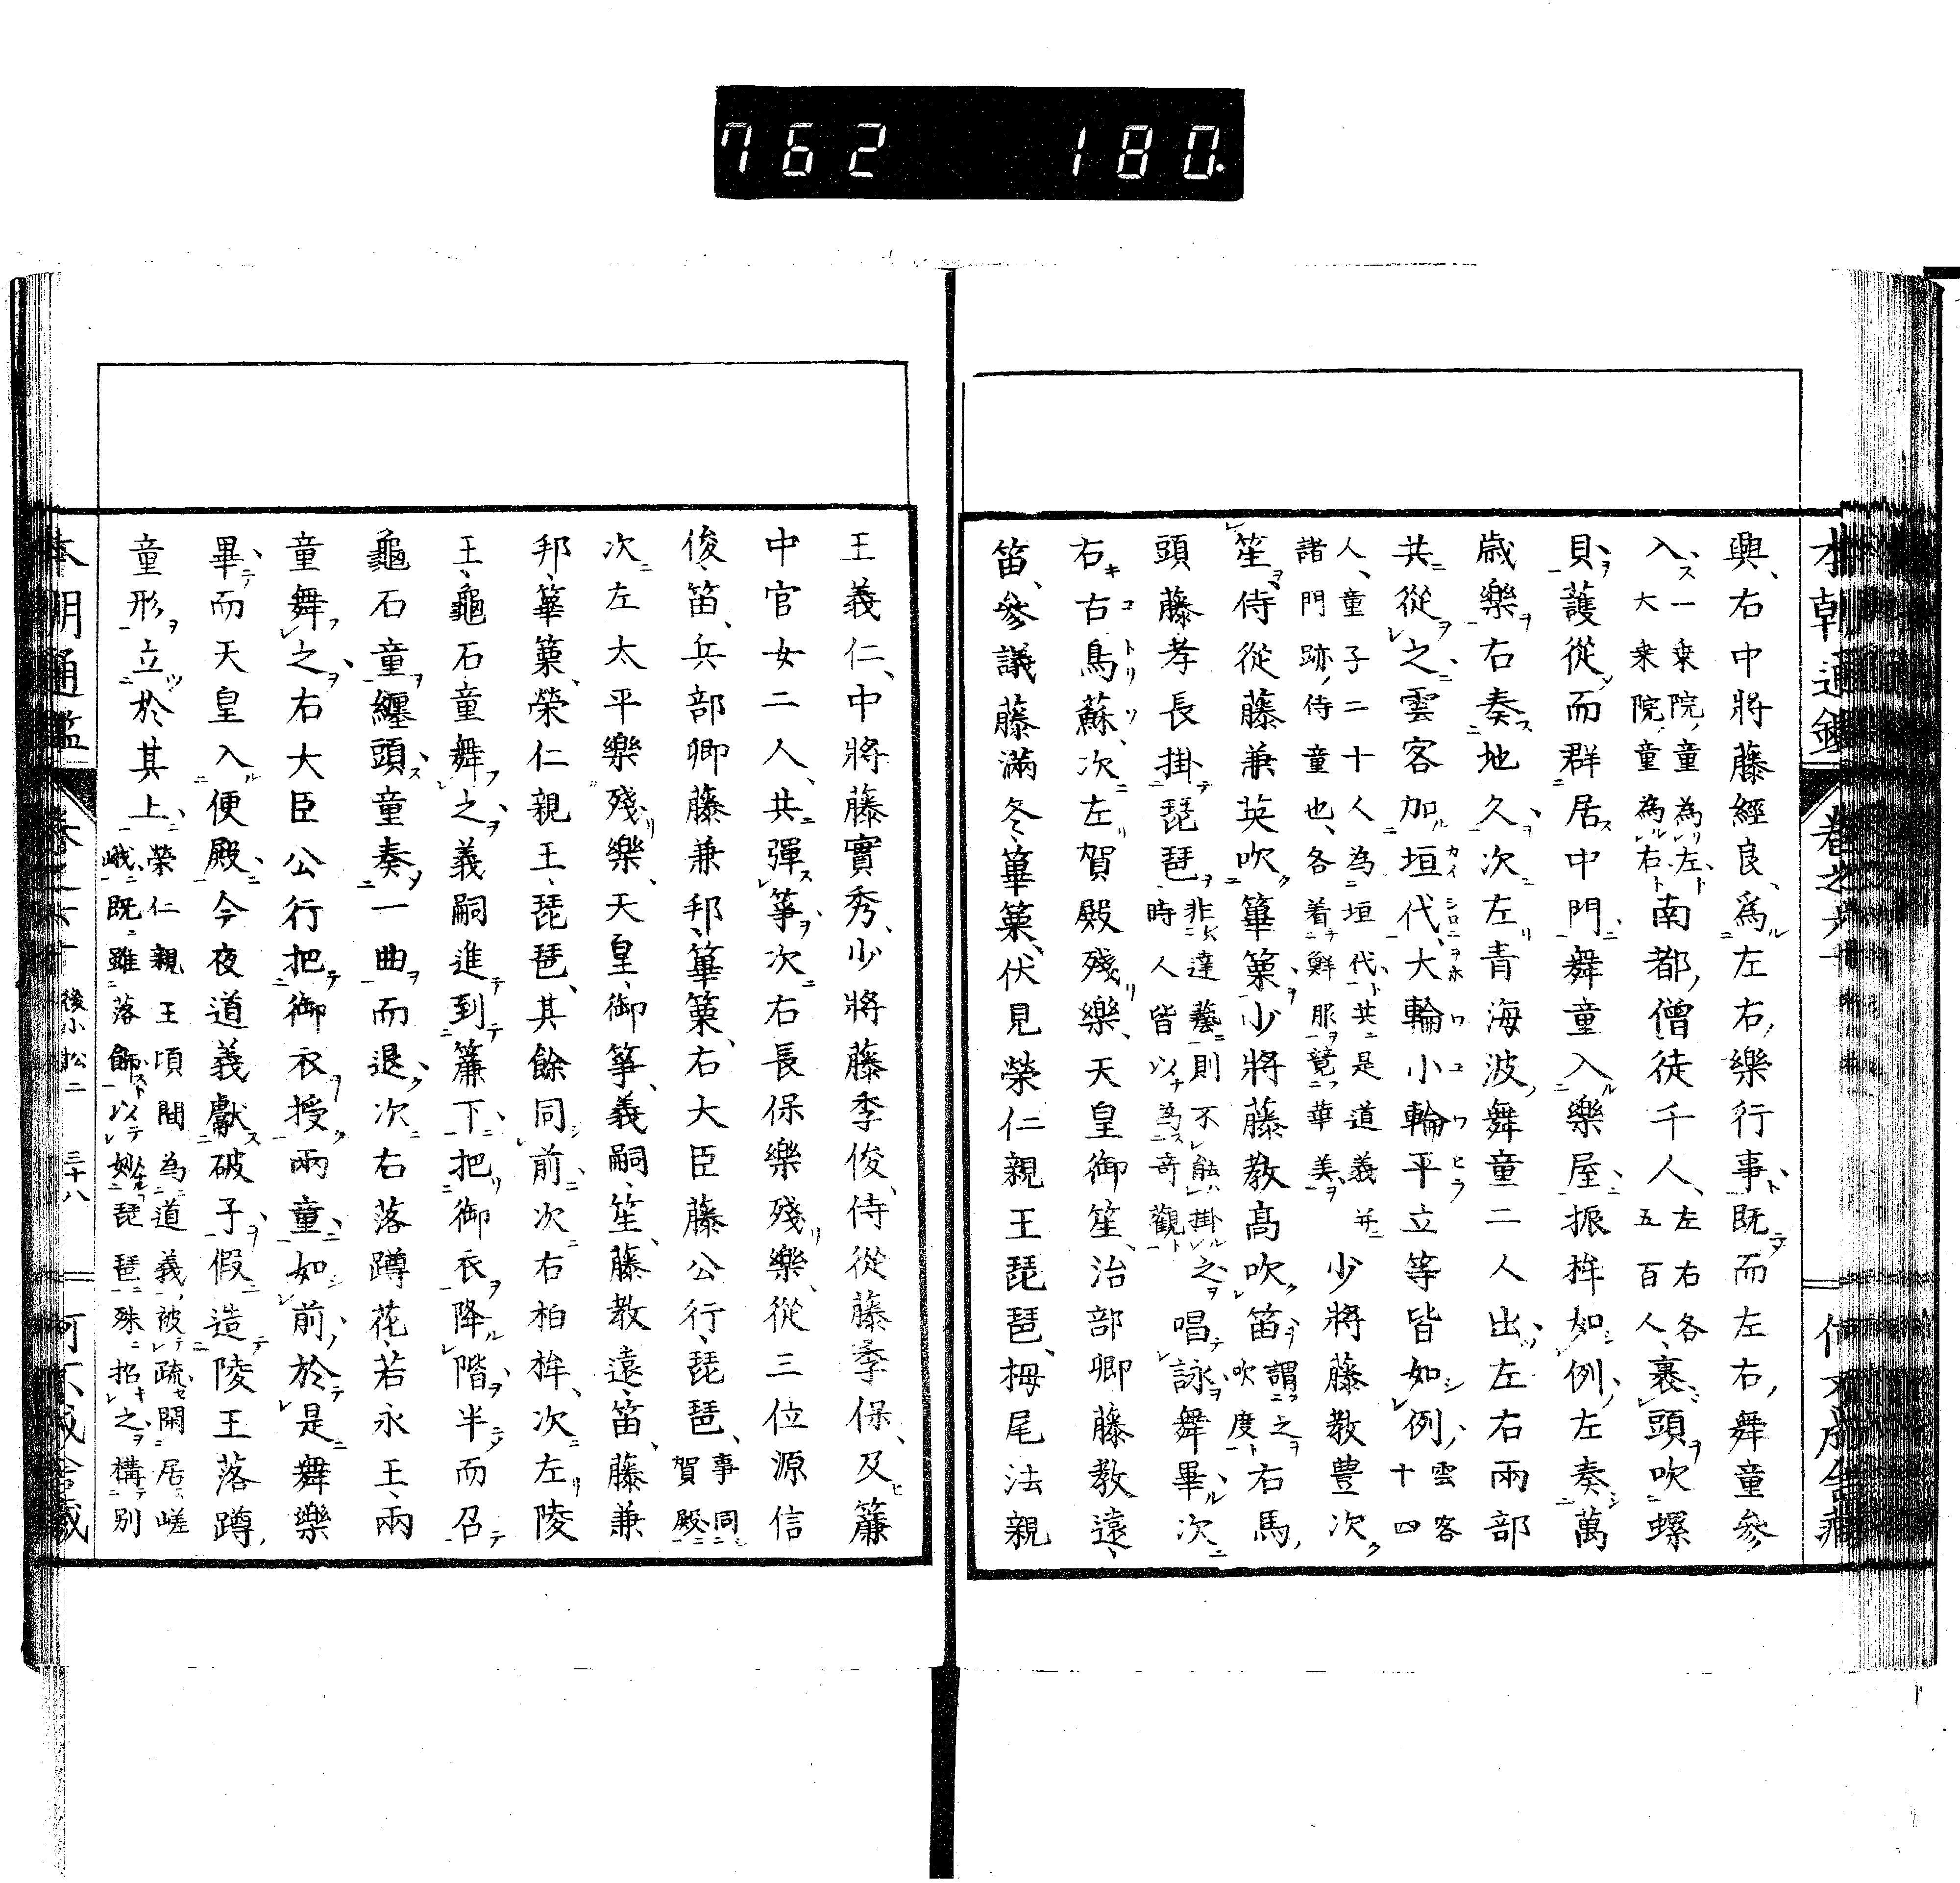 762 180.
興、右中將藤經良、爲左右樂行事、既而左右舞童參
入、一乗院童為左、大乗院童為右、南都僧徒千人、左右各五百人、裹頭吹螺
貝護從而群居中門、舞童入樂屋、振桙如例、左奏萬
歳樂、右奏地久、次左青海波、舞童二人出、左右兩部
共從之、雲客加垣代、大輪小輪平立等皆如例、雲客十四
人、童子二十人為垣代、共是道義并諸門跡侍童也、各着鮮服競華美、少將藤教豊次
笙、侍從藤兼英吹篳篥、少將藤教高吹笛、謂之吹度、右馬
頭藤孝長掛琵琶、非達藝則不能掛之、時人皆以為奇觀、唱詠舞畢、次
右古鳥蘇、次左賀殿殘樂、天皇御笙、治部卿藤教遠、
笛、參議藤滿冬、篳篥、伏見榮仁親王琵琶、栂尾法親
王義仁、中將藤實秀、少將藤季俊、侍從藤季保、及簾
中官女二人、共彈箏、次右長保樂殘樂、從三位源信
俊、笛、兵部卿藤兼邦、篳篥、右大臣藤公行、琵琶、事同賀殿、
次左太平樂殘樂、天皇、御箏、義嗣、笙、藤教遠、笛、藤兼
邦、篳篥、榮仁親王、琵琶、其餘同前、次右柏桙、次左陵
王、龜石童舞之、義嗣進到簾下、把御衣、降階半而召
龜石童纏頭、童奏一曲而退、次右落蹲花、若永王、兩
童舞之、右大臣公行把御衣授兩童、如前、於是舞樂
畢、而天皇入便殿、今夜道義獻破子、假造陵王落蹲
童形立於其上、榮仁親王頃間為道義被疏、閑居嵯峨、既雖落餝、以妙琵琶、殊招之、構別
本朝通鑑 卷之六十 後小松二 三十八